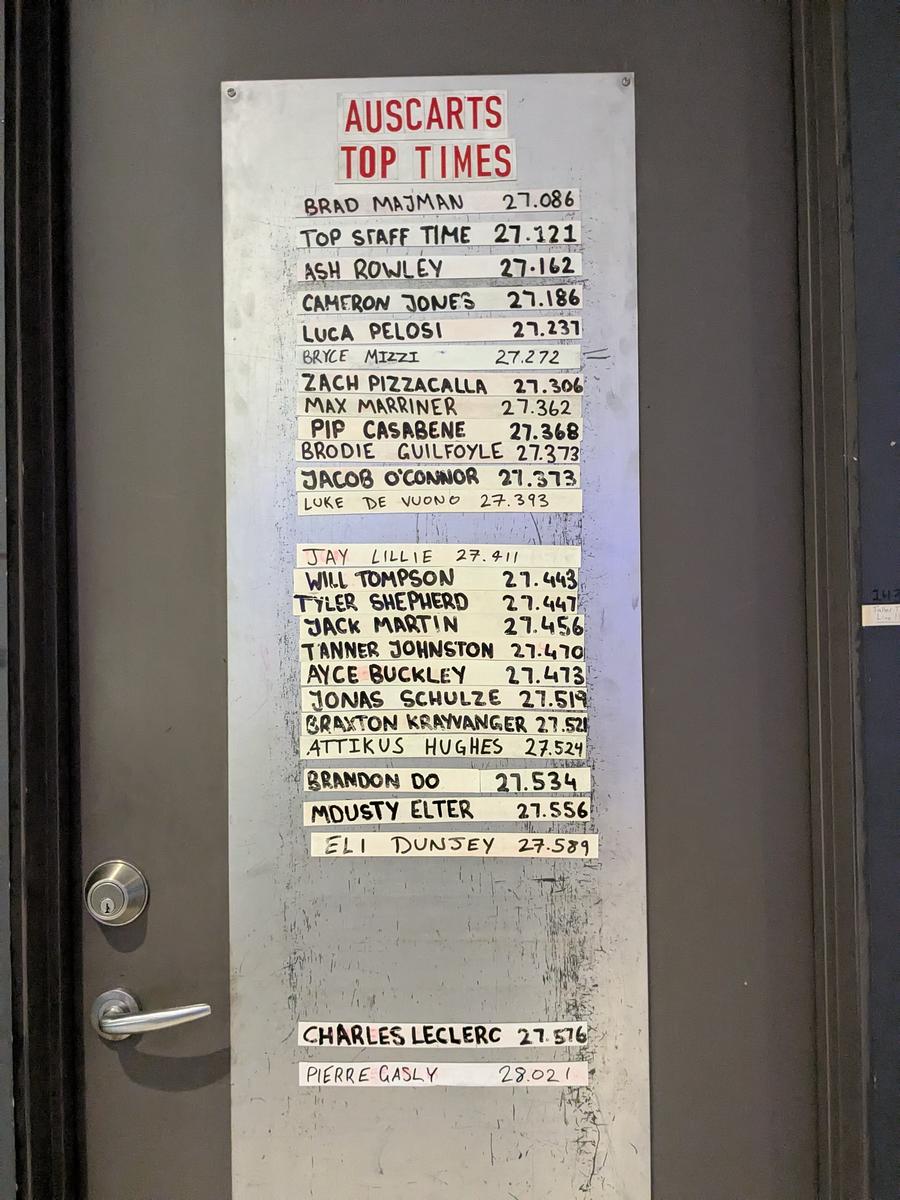 AUSCARTS
TOP TIMES
BRAD MAJMAN 27.086
TOP STAFF TIME 27.121
ASH ROWLEY 27.162
CAMERON JONES 27.186
LUCA PELOSI 27.237
BRYCE MIZZI 27.272
ZACH PIZZACALLA 27.306
MAX MARRINER 27.362
PIP CASABENE 27.368
BRODIE GUILFOYLE 27.373
JACOB O'CONNOR 27.373
LUKE DE VUONO 27.393
JAY LILLIE 27.411
WILL TOMPSON 27.443
TYLER SHEPHERD 27.447
JACK MARTIN 27.456
TANNER JOHNSTON 27.470
AYCE BUCKLEY 27.473
JONAS SCHULZE 27.519
BRAXTON KRAYVANGER 27.521
ATTIKUS HUGHES 27.524
BRANDON DO 27.534
MDUSTY ELTER 27.556
ELI DUNJEY 27.589
CHARLES LECLERC 27.576
PIERRE GASLY 28.021